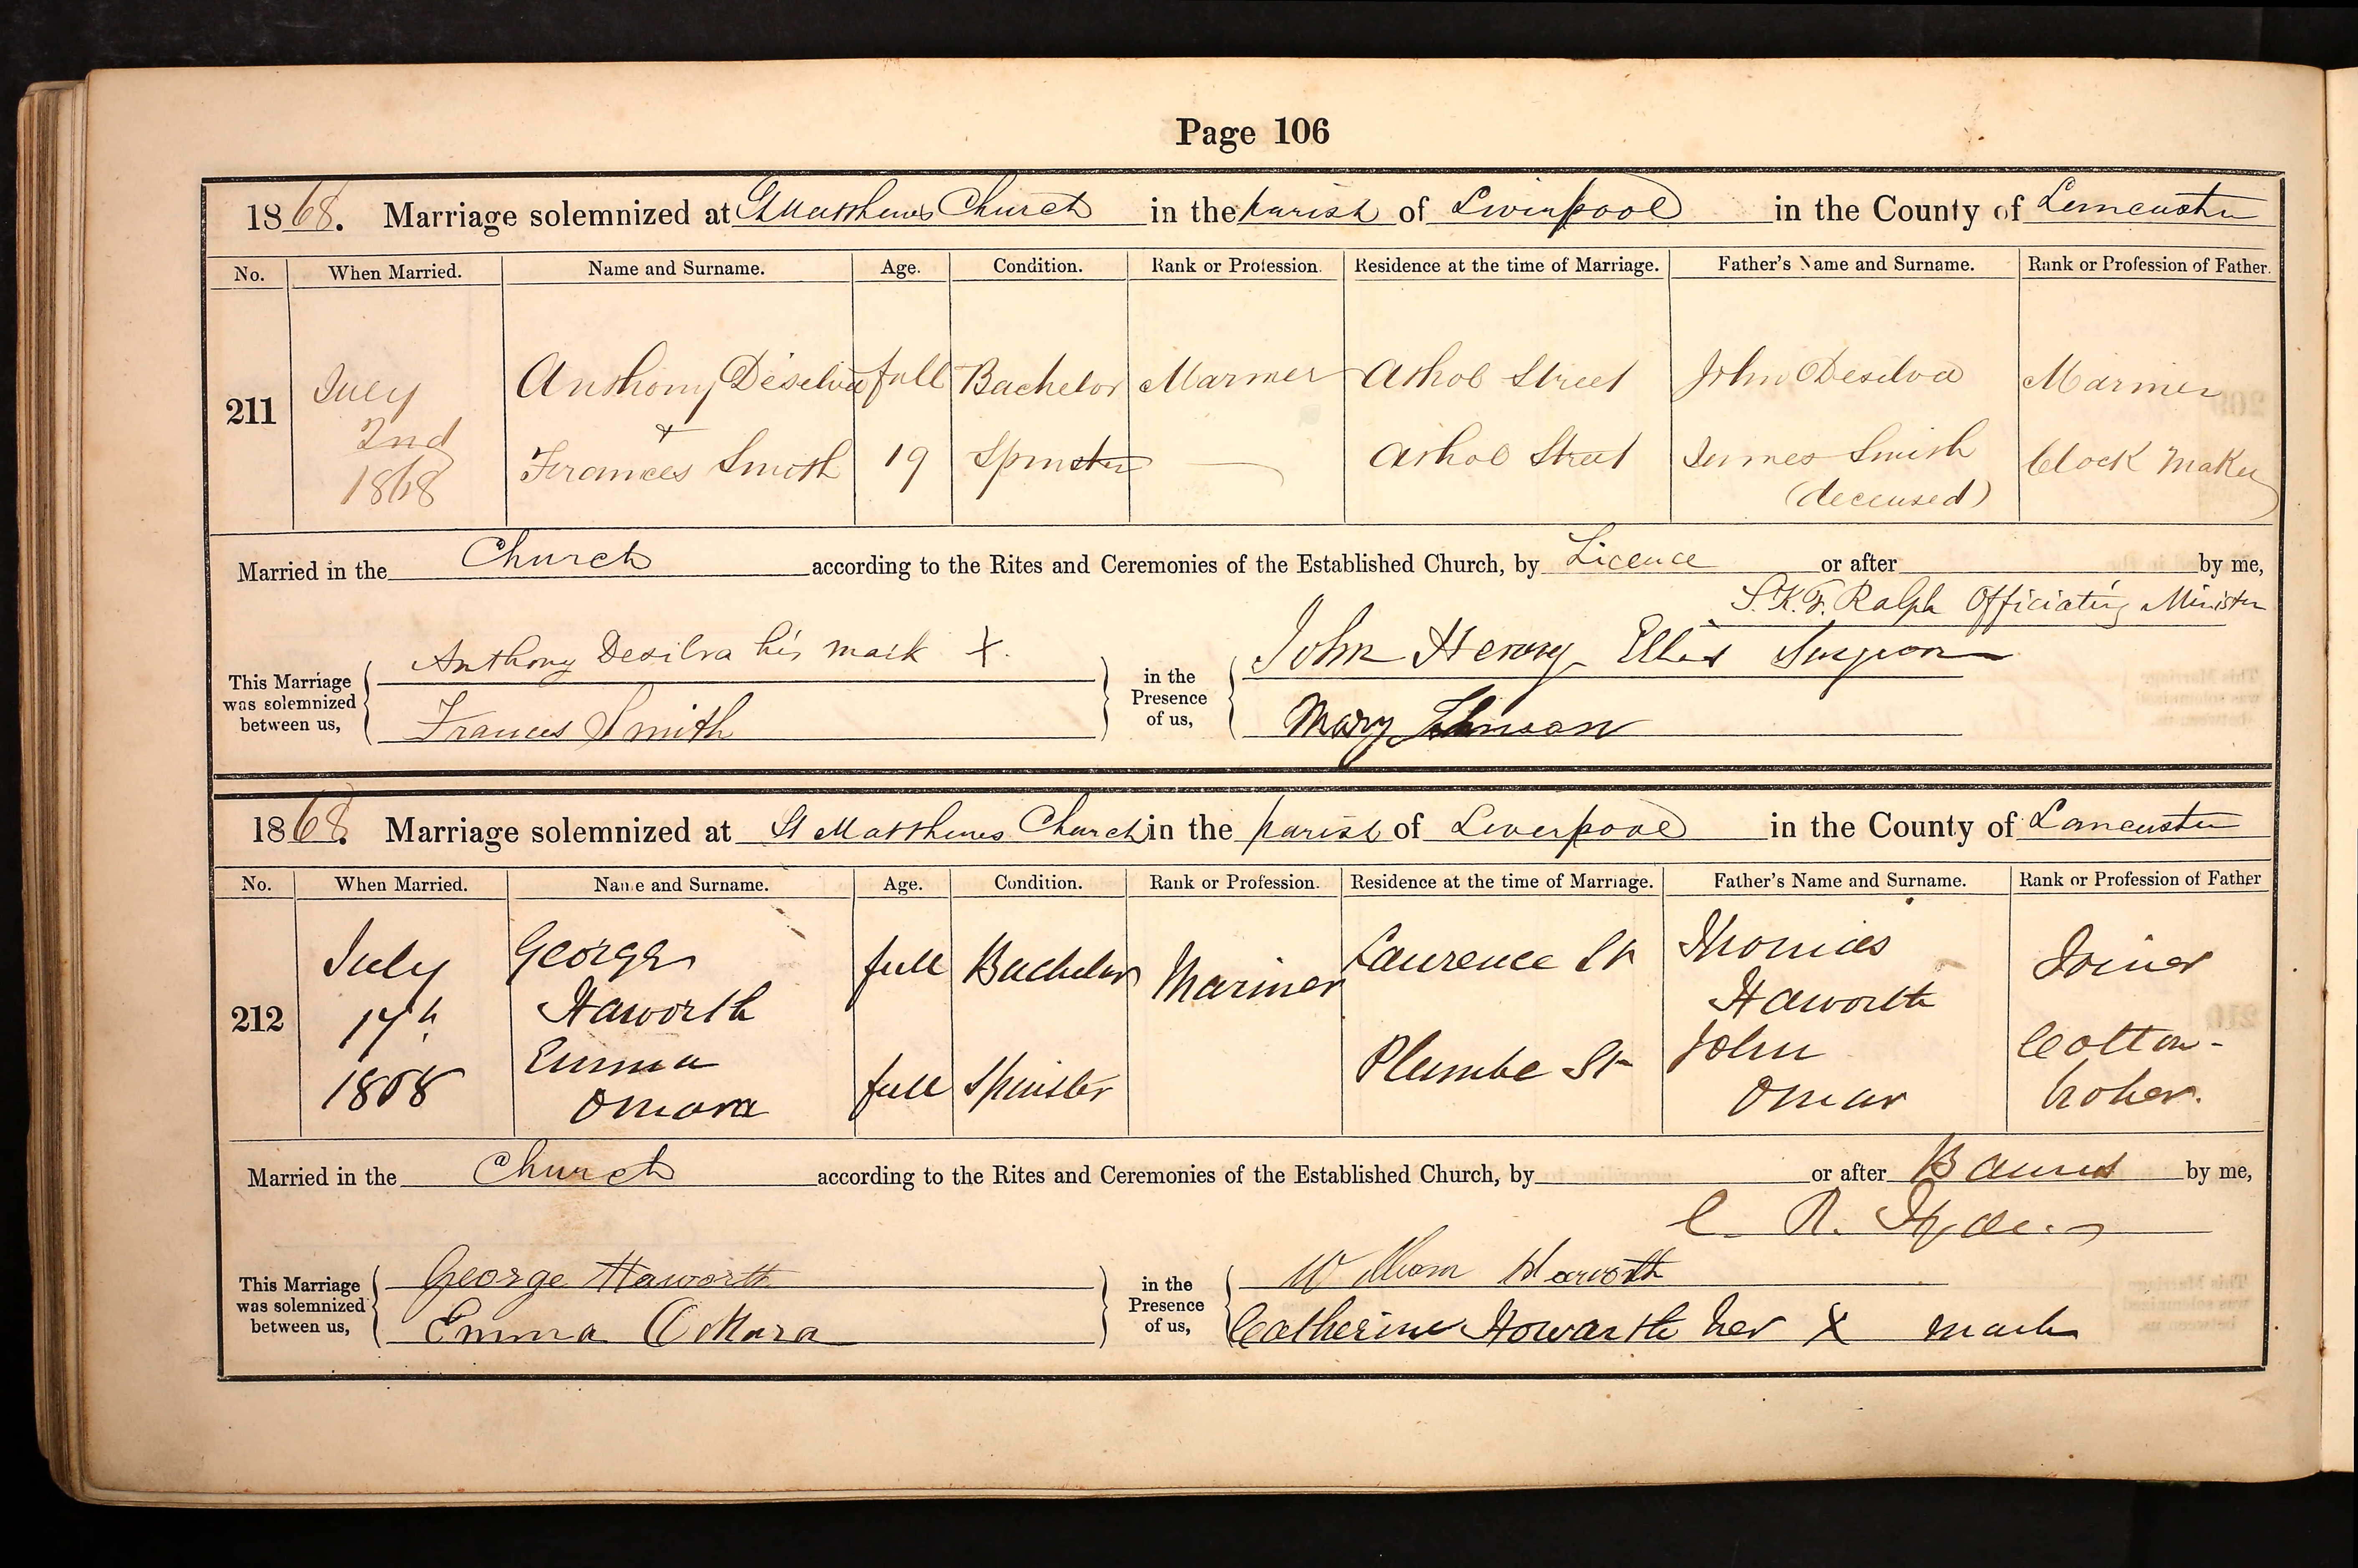 Page 106
1868. Marriage solemnized at St Matthews Church in the parish of Liverpool in the County of Lancaster
No. When Married. Name and Surname. Age. Condition. Rank or Profession. Residence at the time of Marriage. Father's Name and Surname. Rank or Profession of Father.
211 July 2nd 1868 Anthony Desilva full Bachelor Mariner Athol Street John Desilva Mariner
+
Frances Smith 19 Spinster — Athol Street James Smith (deceased) Clock Maker
Married in the Church according to the Rites and Ceremonies of the Established Church, by Licence or after by me,
S.K.F. Ralph Officiating Minister
This Marriage was solemnized between us, Anthony Desilva his mark X. Frances Smith
in the Presence of us, John Henry Ellis Surgeon Mary Johnson
1868. Marriage solemnized at St Matthews Church in the parish of Liverpool in the County of Lancaster
No. When Married. Name and Surname. Age. Condition. Rank or Profession. Residence at the time of Marriage. Father's Name and Surname. Rank or Profession of Father
212 July 17th 1868 George Haworth full Bachelor Mariner Laurence St Thomas Haworth Joiner
Emma Omara full Spinster Plumbe St John Omar Cotton-broker.
Married in the Church according to the Rites and Ceremonies of the Established Church, by or after Banns by me,
C. R.
This Marriage was solemnized between us, George Haworth Emma OMara
in the Presence of us, William Haworth Catherine Howarth her X mark